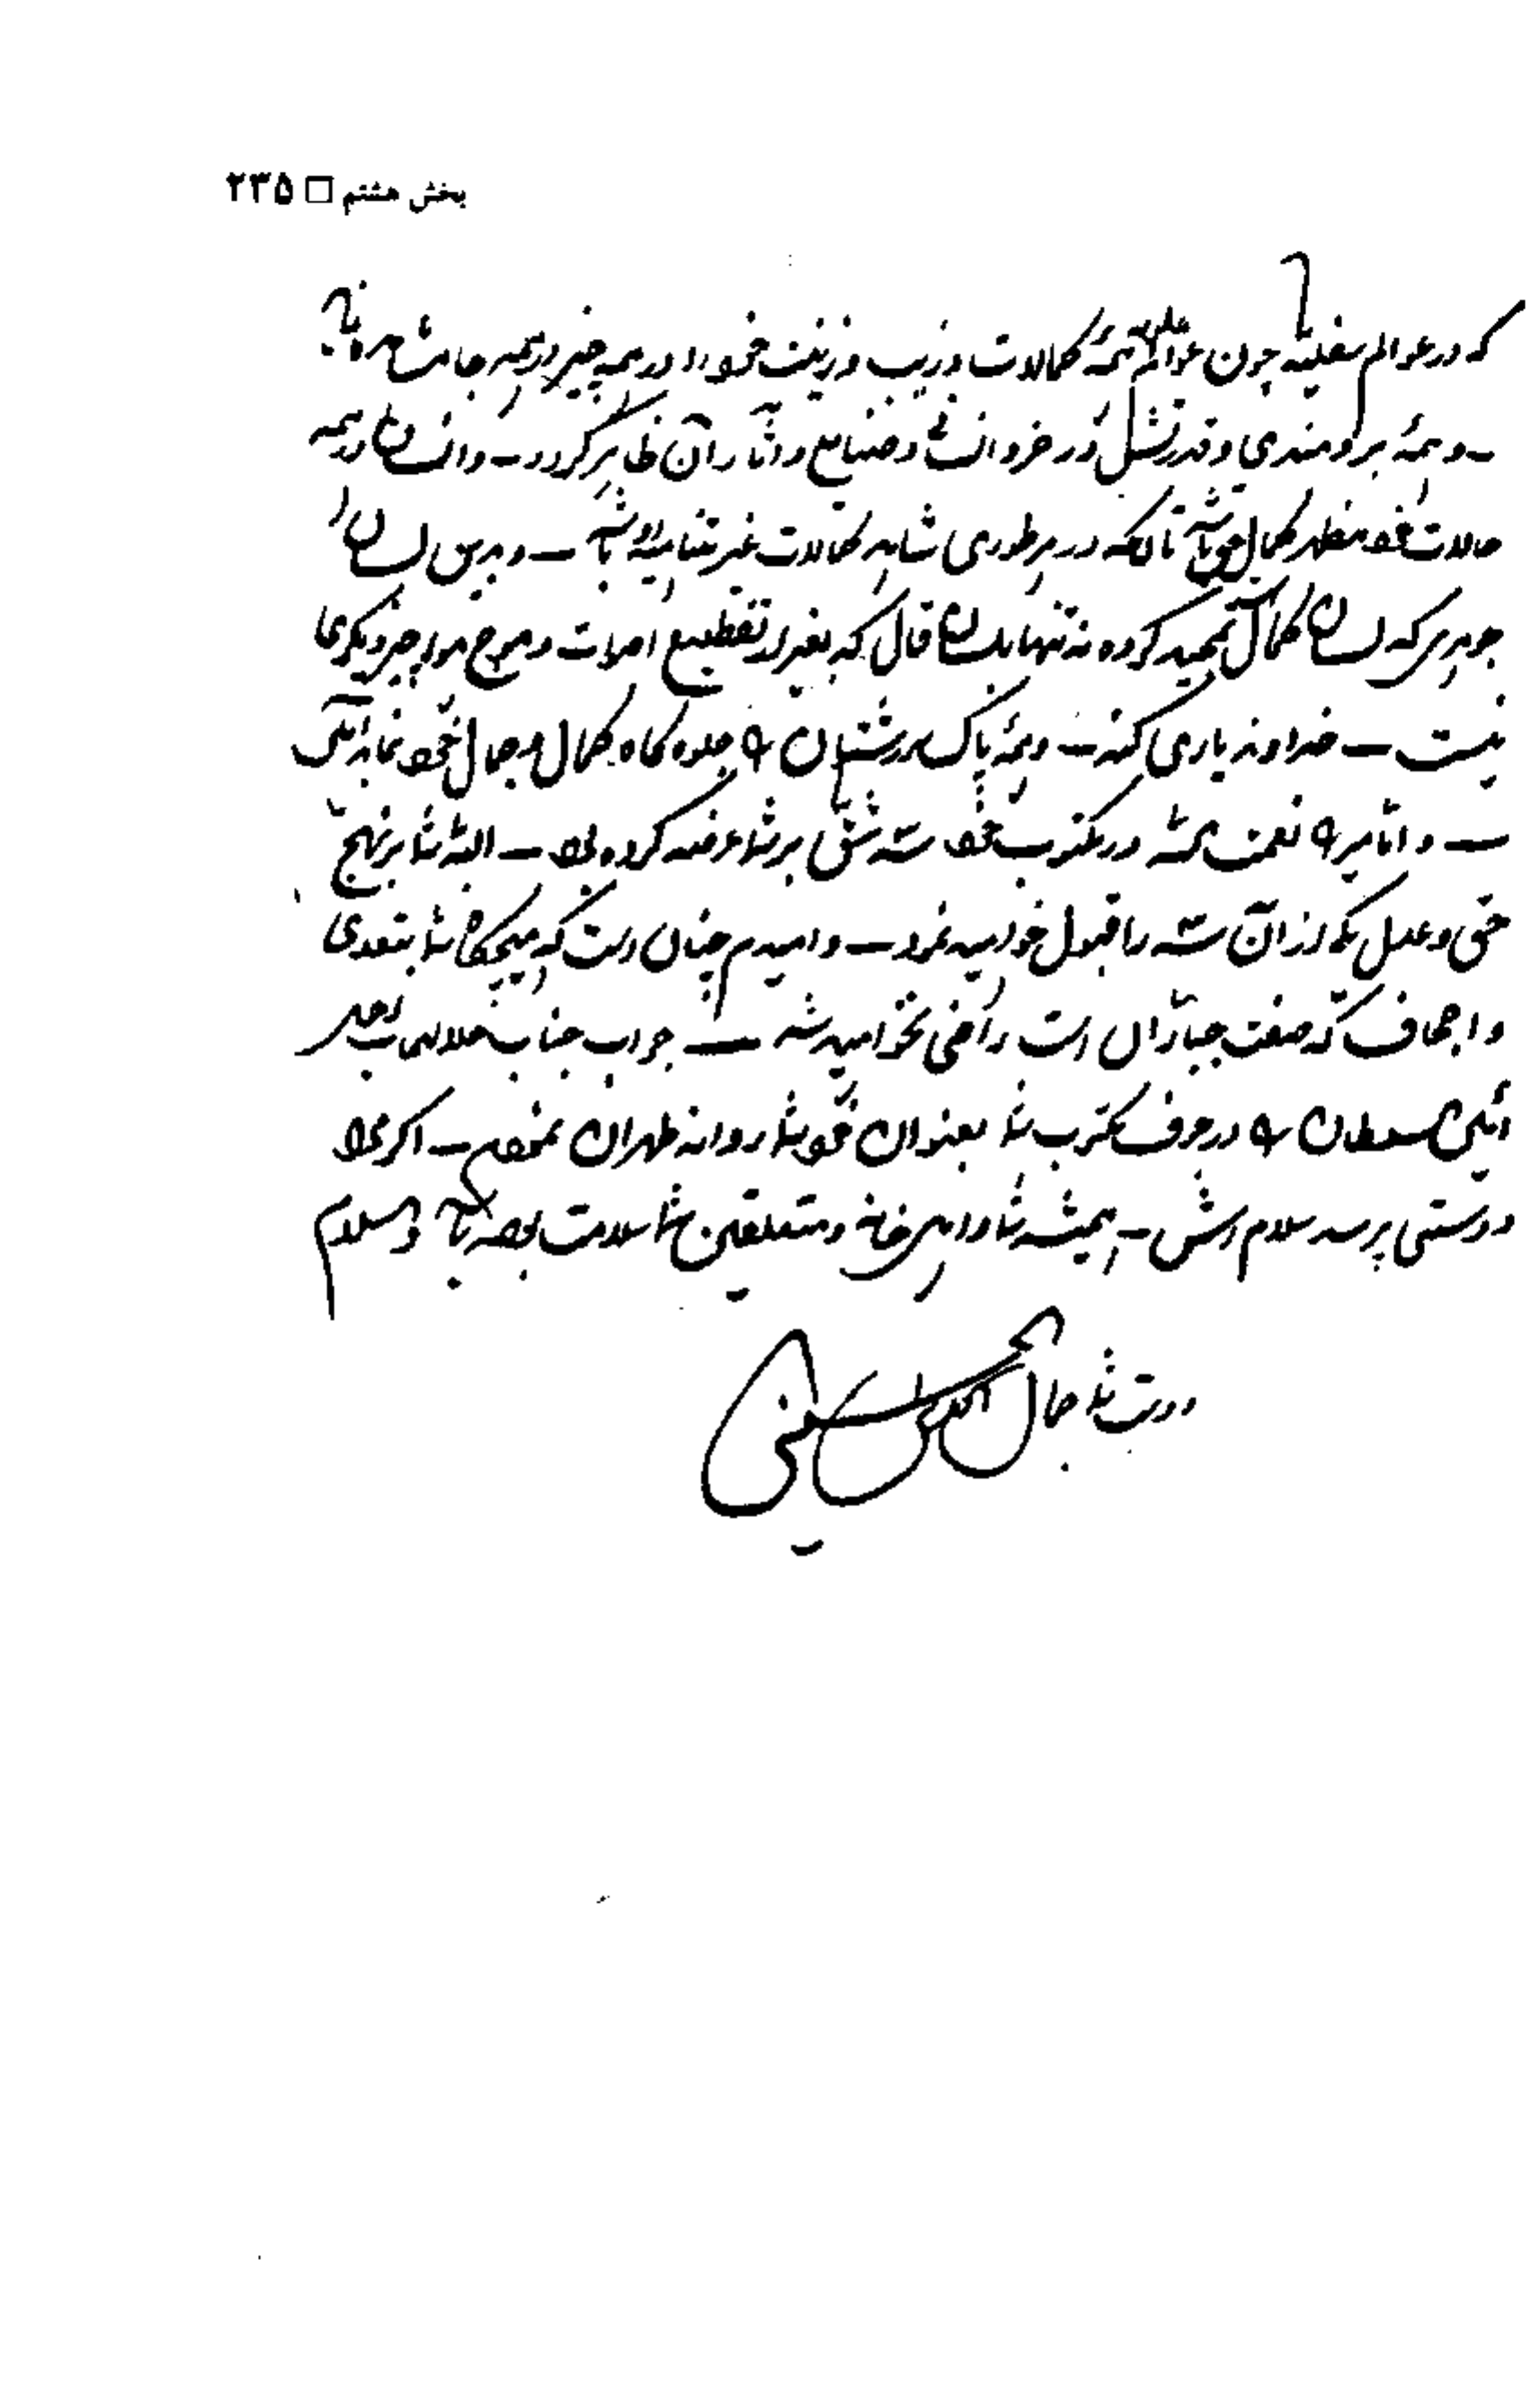 بخش هشتم □ ۲۳۵
که در عوالم سفلیه چون عوالم علویه همهٔ کمالات و زیب و زینت خود را در همه چیز و در همه جا مشاهده نماید
ـ و همهٔ برومندی و قدرتش در خرد انسانی و صنایع و آثار آن ظاهر گردد ـ و انسان در همه
حالات خود مظهر کمال حق باشد تا آنکه در هر طوری شاهد کمالات غیر متناهیه او باشد ـ و بدین لسان
جوهری که لسان کمال است تمجید کرده نه تنها بلسان قال که بغیر از تقطیع اصوات و تموج هوا چیز دیگری
نیست ـ خداوند یاری کند ـ و همهٔ پاک سرشتان را جلوه گاه کمال و جمال خود نماید آمین
ـ و اثاثیه را نعمت الله در مکتوب خود سه شق بر شما عرضه کرده بود ـ البته شما بر نهج
حق و عدل یکی از آن سه را قبول خواهید نمود ـ و امیدم چنان است که هیچگاه شما بتعدی
و اجحاف که صفت جباران است راضی نخواهید شد ـ جواب جناب جلالتمآب اجل
امین السلطان را در جوف مکتوب شما بعنوان خود شما روانه طهران نمودم ـ اگر
دوستی پرسد سلام رسانش ـ همیشه شما و اهل خانه و متعلقین شما سلامت بوده باشید والسلام
دوست شما جمال الدین الحسینی